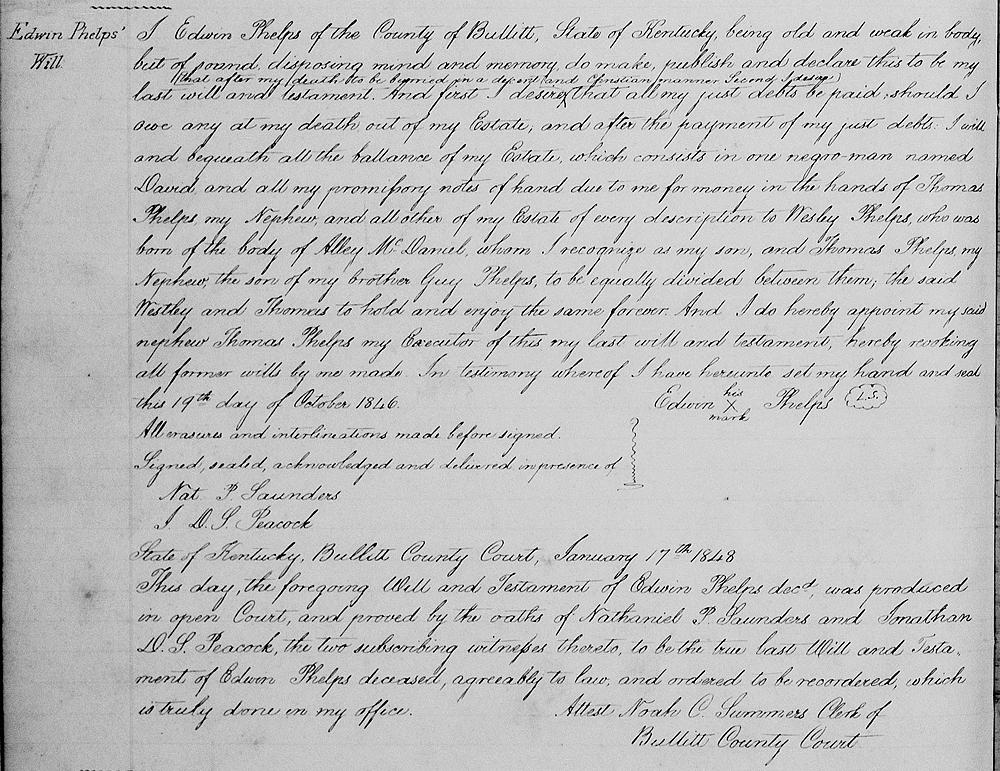 Edwin Phelps'
Will.
I Edwin Phelps of the County of Bullitt, State of Kentucky, being old and weak in body,
but of sound, disposing mind and memory, do make, publish and declare this to be my
that after my death to be burried in a decent and Christian manner Second I desire
last will and testament. And first I desire that all my just debts be paid, should I
owe any at my death, out of my Estate, and after the payment of my just debts. I will
and bequeath all the ballance of my Estate, which consists in one negro-man named
David, and all my promissory notes of hand due to me for money in the hands of Thomas
Phelps, my Nephew, and all other of my Estate of every description to Wesley Phelps, who was
born of the body of Alley McDaniel, whom I recognize as my son, and Thomas Phelps, my
Nephew, the son of my brother Guy Phelps, to be equally divided between them; the said
Westley and Thomas to hold and enjoy the same forever. And I do hereby appoint my said
nephew Thomas Phelps my Executor of this my last will and testament, hereby revoking
all former wills by me made. In testimony whereof I have hereunto set my hand and seal
this 19th day of October 1846.
Edwin his X mark Phelps L.S.
All erasures and interlineations made before signed.
Signed, sealed, acknowledged and delivered in presence of
Nat. P. Saunders
J. D. S. Peacock
State of Kentucky, Bullitt County Court, January 17th 1848
This day, the foregoing Will and Testament of Edwin Phelps decd, was produced
in open Court, and proved by the oaths of Nathaniel P. Saunders and Jonathan
D. S. Peacock, the two subscribing witnesses thereto, to be the true last Will and Testa-
ment of Edwin Phelps deceased, agreeably to law, and ordered to be recordered, which
is truly done in my office.
Attest Noah C. Summers Clerk of
Bullitt County Court